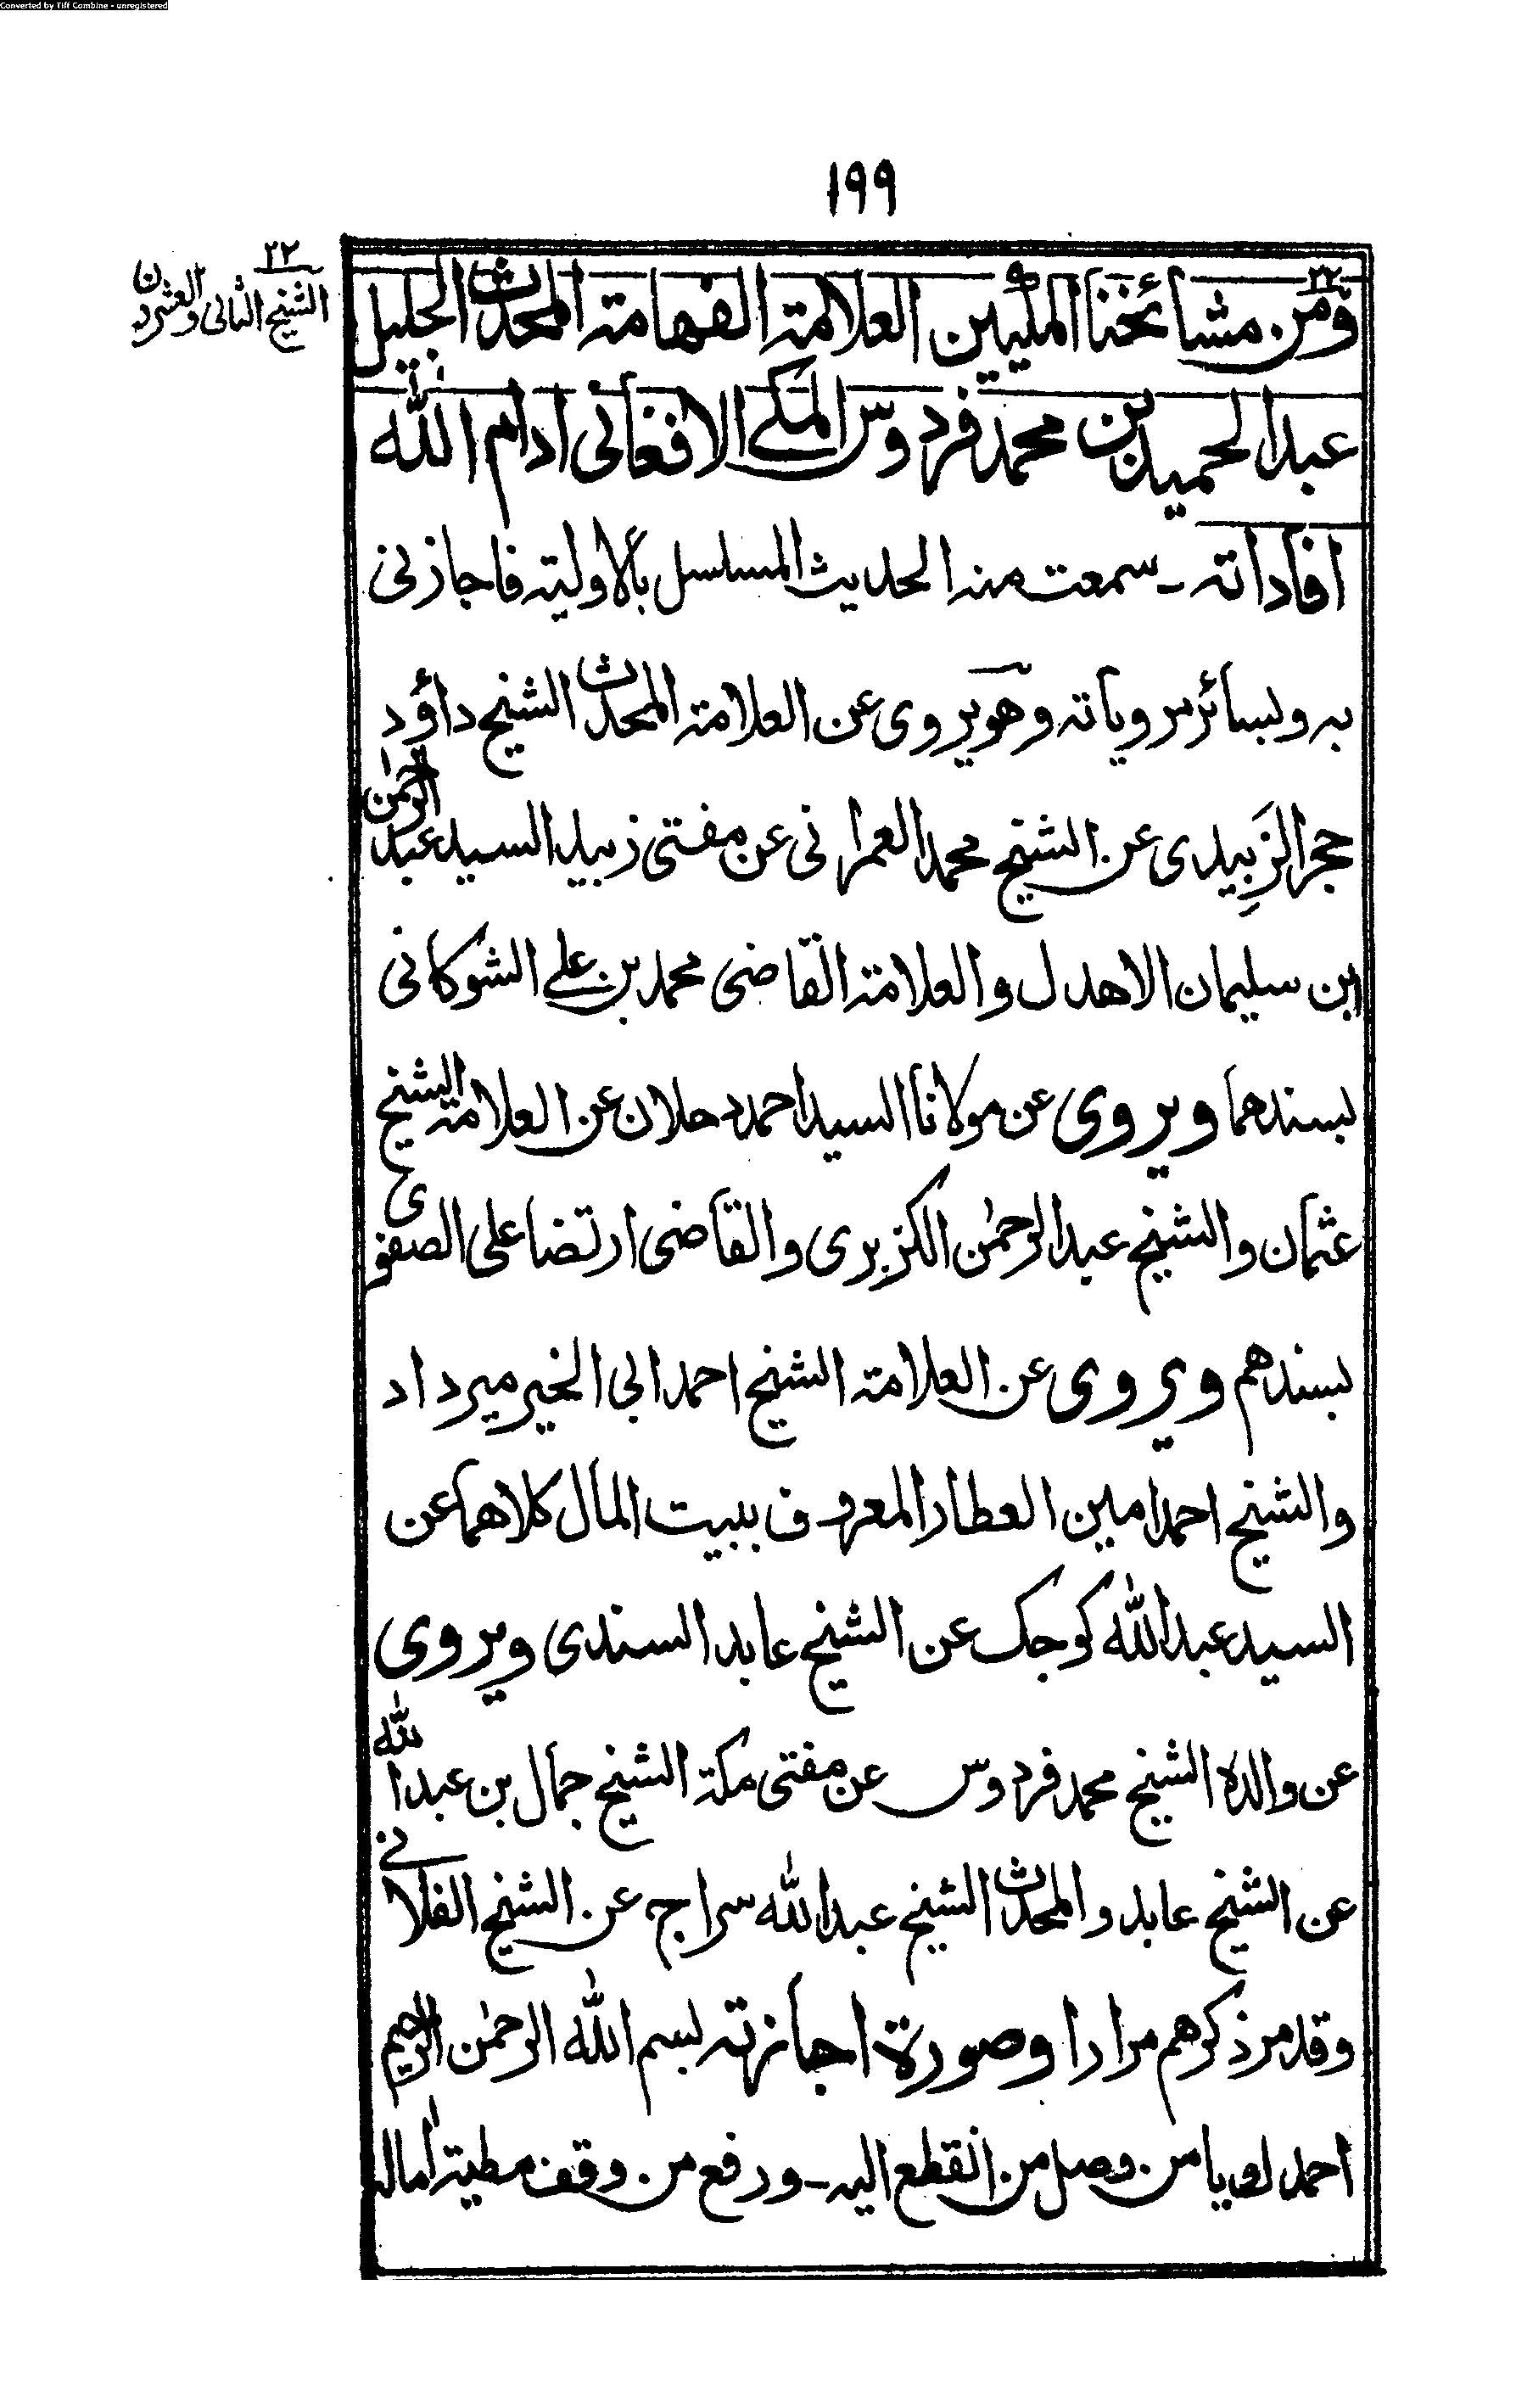 Converted by Tiff Combine - unregistered
١٩٩
٢٢
الشيخ الثانى والعشرون
٢٢
ومن مشائخنا المكيين العلامة الفهامة المحدث الجليل
عبد الحميد بن محمد فردوس المكي الافغانى ادام الله
افاداته - سمعت منه الحديث المسلسل بالاولية فاجازنى
به وبسائر مروياته وهو يروى عن العلامة المحدث الشيخ داؤد
حجر الزَبِيدى عن الشيخ محمد العمرانى عن مفتى زبيد السيد عبد الرحمن
ابن سليمان الاهدل والعلامة القاضى محمد بن علي الشوكانى
بسندهما ويروى عن مولانا السيد احمد دحلان عن العلامة الشيخ
عثمان والشيخ عبد الرحمٰن الكزبرى والقاضى ارتضا على الصفوى
بسندهم ويروى عن العلامة الشيخ احمد ابى الخير ميرداد
والشيخ احمد امين العطار المعروف ببيت المال كلاهما عن
السيد عبد الله كوجك عن الشيخ عابد السندى ويروى
عن والده الشيخ محمد فردوس عن مفتى مكة الشيخ جمال بن عبد الله
عن الشيخ عابد والمحدث الشيخ عبد الله سراج عن الشيخ الفلانى
وقد مر ذكرهم مرارا وصورة اجازته بسم الله الرحمٰن الرحيم
احمدك يا من وصل من انقطع اليه - ورفع من وقف مطية اٰماله